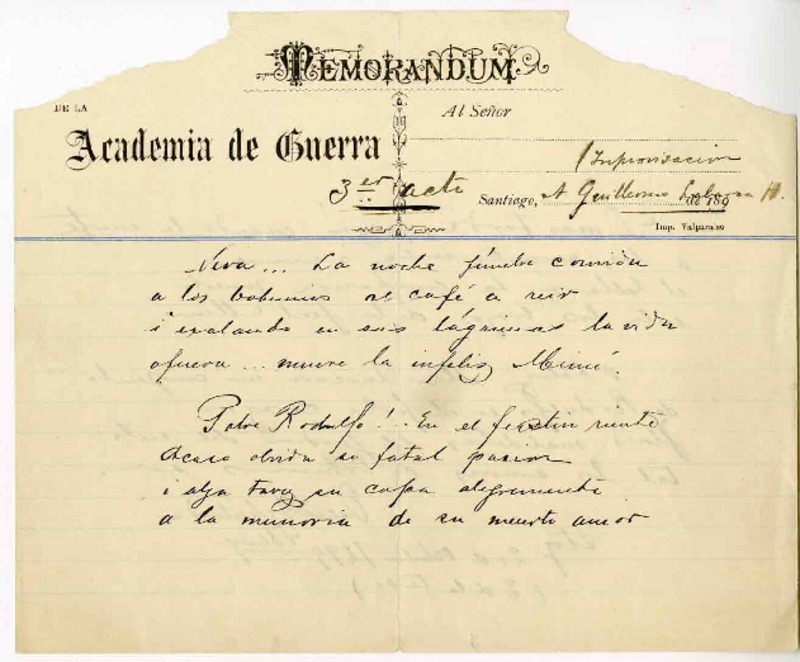 MEMORANDUM
DE LA
Academia de Guerra
Al Señor
(Improvisacion
3er acto
Santiago, A Guillermo Labarca H. de 189
Imp. Valparaiso
Neva... La noche fúnebre convida
a los bohemios al café a reir
i exalando en sus lágrimas la vida
afuera... muere la infeliz Mimí.
Pobre Rodolfo!.. En el festin riente
Acaso olvida su fatal pasion
i alza su copa alegremente
a la memoria de su muerto amor